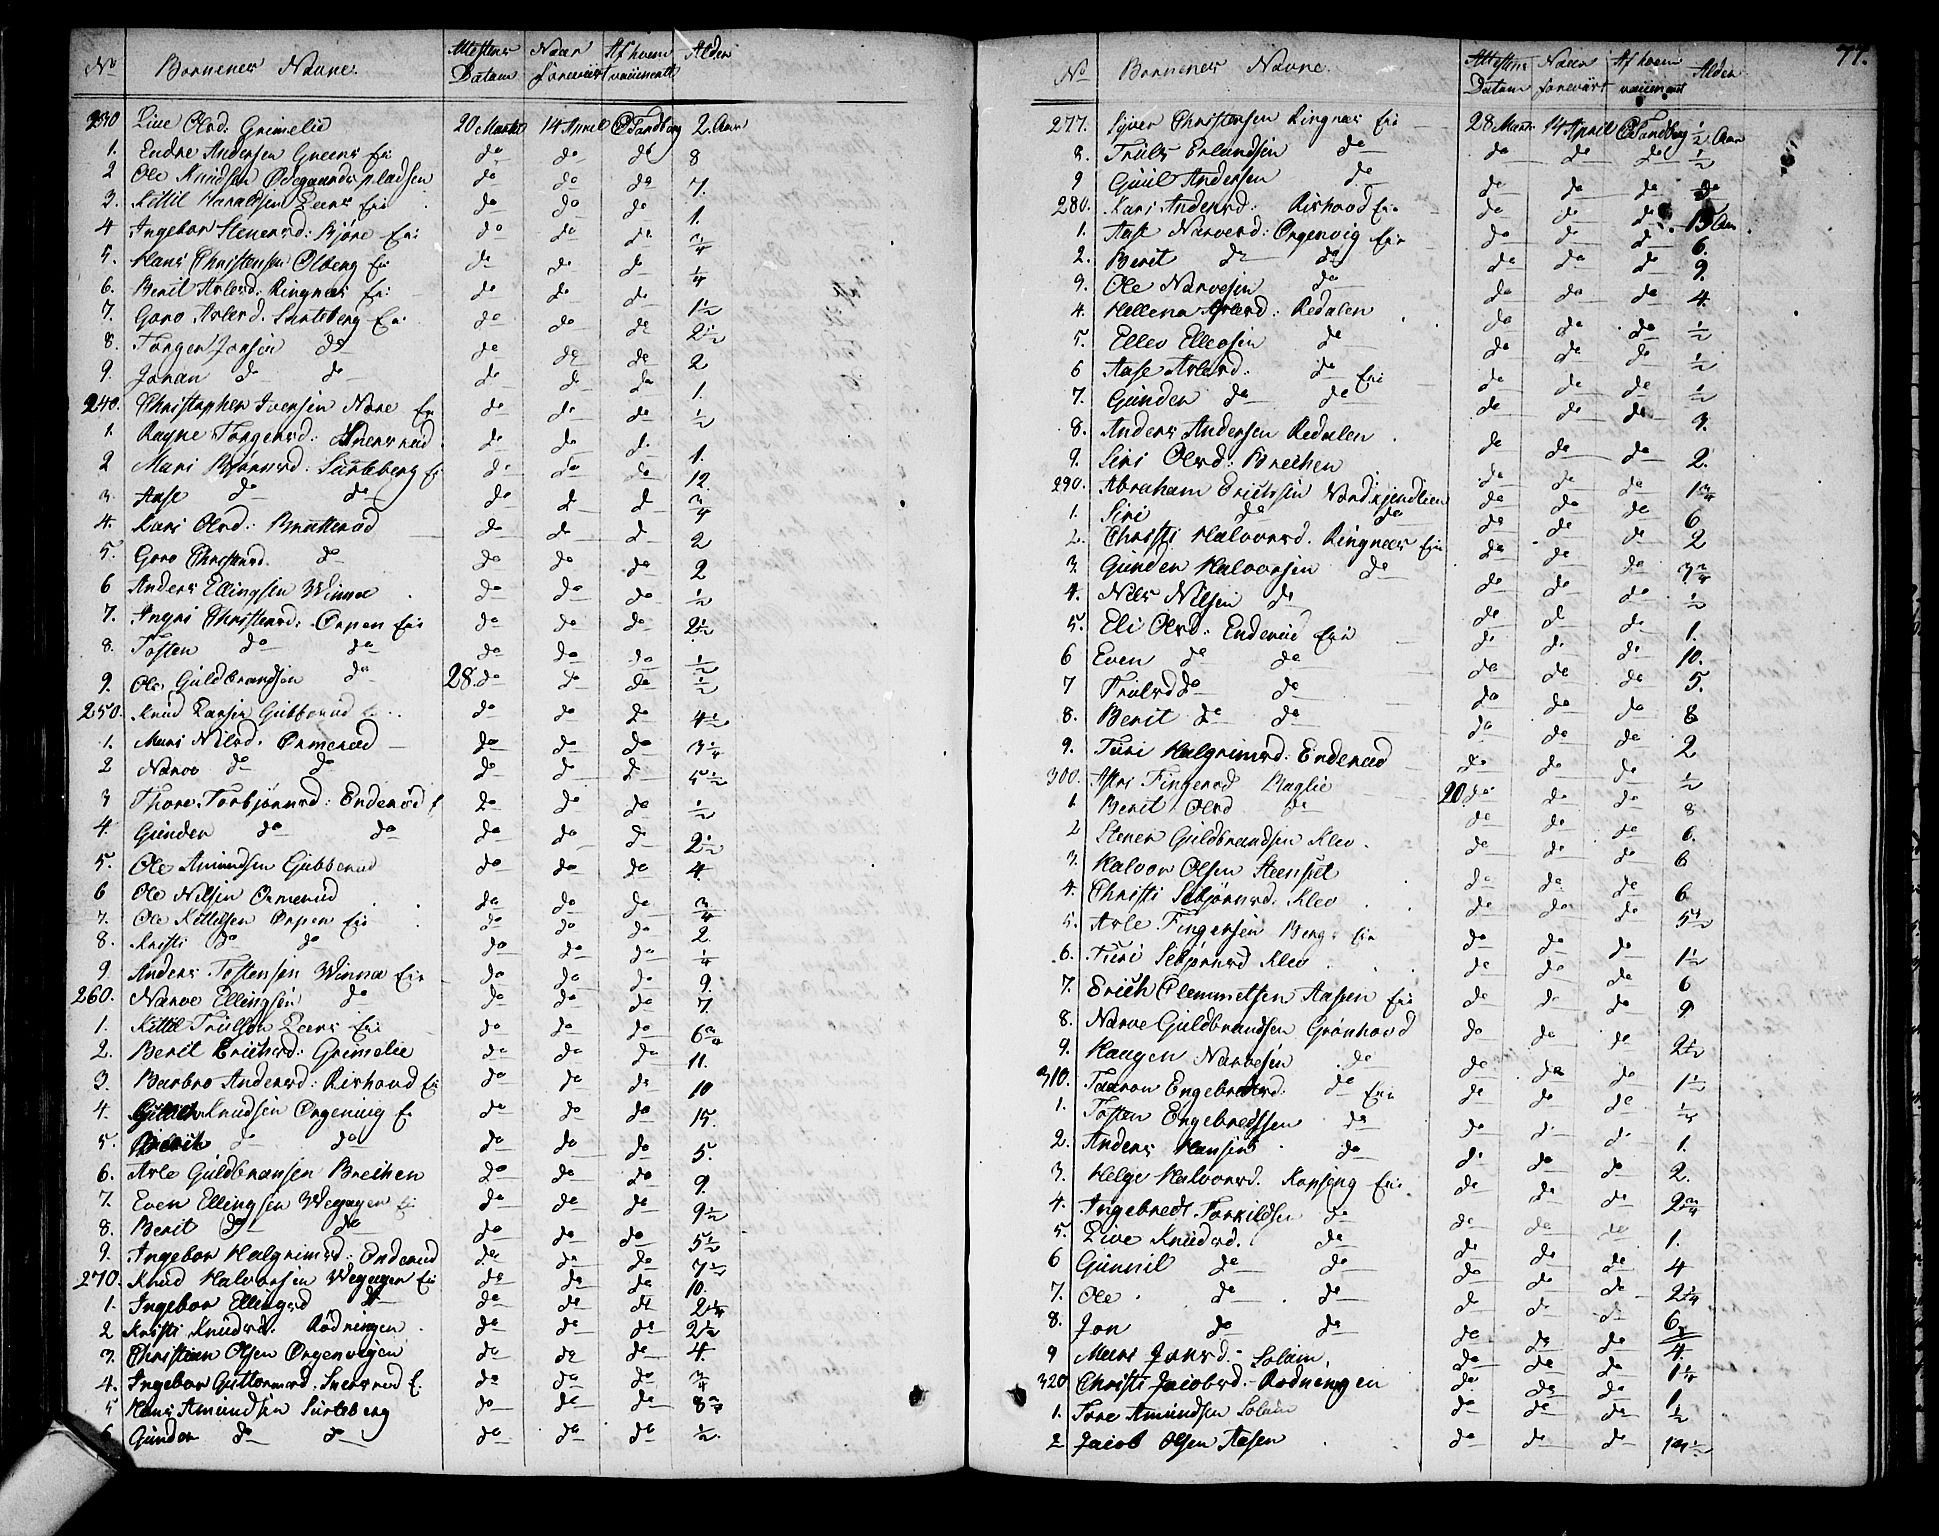 No Børnenes Navne. Attestens Datum Naar forevüst Af hvem vaccineret Alder
230 Live Olsd: Grimelie 20 Marts 14 April Tandberg 2. Aar
1. Endre Andersen Green Eie do do do 8
2 Ole Knudsen Ødegaards pladsen do do do 7.
3. Kittil Haraldsen Leers Eie do do do 1.
4 Ingebor Stenersd: Bjøre Eie do do do 3/4
5. Hans Christensen Olberg Eie do do do 1/4
6. Berit Arlesd: Ringnes Eie do do do 1 1/2
7. Goro Arlesd. Surteberg Eie do do do 2 1/2
8. Torgen Jonsen do do do do 2
9. Joran do do do do do 1.
240. Christopher Iversen Nore Eie do do do 1/2
1. Ragne Torgersd: Snersrud do do do 1.
2 Mari Bjørnsd: Surteberg Eie do do do 12
3. Aase do do do do do 3/4
4. Kari Olsd: Bratterud do do do 2
5. Goro Christensd. do do do do 2
6 Anders Ellingsen Winnæ do do do 1/2
7. Ingri Christensd: Ørpen Eie do do do 2 1/2
8. Tosten do do do do do 1/2
9. Ole Guldbrandsen do 28. do do do 1/2
250. Knud Larsen Gubberud do do do 4 1/2
1. Mari Nilsd. Ormerud do do do 3 1/4
2 Narve do do do do do 5 1/2
3 Thore Torbjørnsd: Enderud do do do 1/2
4. Gunder do do do do do 2 1/2
5. Ole Amundsen Gubberud do do do 4.
6 Ole Nilsen Ormerud do do do 3/4
7. Ole Kittilsen Ørpen Eie do do do 2.
8. Kristi do do do do do 1/4
9. Anders Tostensen Winnæ Eie do do do 9.
260. Narve Ellingsen do do do do 7.
1. Kittil Trulsen Leers Eie do do do 6 3/4
2. Berit Erichsd: Grimelie do do do 11.
3. Barbro Andersd: Rishovd Eie do do do 10
4. Knudsen Ørgenvig E. do do do 15.
5. do do do do do 5.
6. Arle Guldbransen Breihen do do do 9.
7. Even Ellingsen Wegagen Ei do do do 9 1/2
8. Berit do do do do do 5 1/2
9. Ingebor Halgrimsd: Enderud do do do 7 1/2
270. Knud Halvorsen Wegagen Eie do do do 10.
1. Ingebor Ellingsd do do do do 2 1/4
2 Kristi Knudsd. Rødningen do do do 2 1/2
3. Christian Olsen Ørgenvigen do do do 4.
4. Ingebor Guttormsd. Snersrud E. do do do 3/4
5 Hans Amundsen Surteberg do do do 8 3/4
6 Gunder do do do do do 1/2
77.
No Børnenes Navne. Attestens Datum Naar forevüst Af hvem vaccineret Alder
277. Syver Christensen Ringnes Eie 28 Marts 14 April Tandberg 1/2 Aar
8. Truls Erlandsen do do do do 1/2
9 Guul Andersen do do do do do
280. Kari Andersd: Rishovd Eie do do do 13 Aar
1. Aase Narvesd: Ørgenvig Eie do do do 6.
2. Berit do do do do do 9.
9. Ole Narvesen do do do do 4
4. Hellena Arlesd: Redalen do do do 1/2
5. Ellev Ellevsen do do do do 1/2
6 Aase Arlesd: do Eie do do do 1/2
7. Gunder do do do do do 3.
8. Anders Andersen Redalen do do do 2.
9. Siri Olsd: Breihen do do do 1 3/4
290. Abraham Erichsen Nordkjendlien do do do 6
1. Siri do do do do do 2
2. Christi Halvorsd. Ringnes Eie do do do 3 3/4
3. Gunder Halvorsen do do do do 1/2
4. Nils Nilsen do do do do 1.
5. Eli Olsd: Enderud Eie do do do 10.
6 Even do do do do do 5.
7 Trulsd do do do do do 8
8. Berit do do do do do 2
9. Turi Halgrimsd: Enderud do do do 1/2
300. Astri Fingersd Baglie 20 do do do 8
1. Berit Olsd do do do do 6.
2 Stener Guldbrandsen Klev do do do 6
3. Halvor Olsen Steenset do do do 6
4. Christi Sebjørnsd. Klev do do do 5 1/2
5. Arle Fingersen Berge Eie do do do 1 1/2
6. Turi Sebjørnsd Klev do do do 6
7. Erich Clemmetsen Aasen Eie do do do 9
8. Narve Guldbrandsen Grønhovd do do do 2 1/2
9. Haagen Narvesen do do do do 1 1/2
310. Taaron Engebretsd: do Eie do do do
1. Tosten Engebredssen do do do do 1.
2. Anders Hansen do do do do 2.
3. Helge Halvorsd. Kopseng Eie do do do 2 3/4
4. Ingebredt Torkildsen do do do do 1.
5. Live Knudsd. do do do do 4
6 Gunnil do do do do do 2 1/4
7. Ole do do do do do 6
8. Jon do do do do do 4.
9 Mari Jonsd: Solum do do do 1 1/4
320 Christi Jacobsd: Rødningen do do do 1
1. Tore Amundsen Solum do do do 1/2
2 Jacob Olsen Aasen do do do